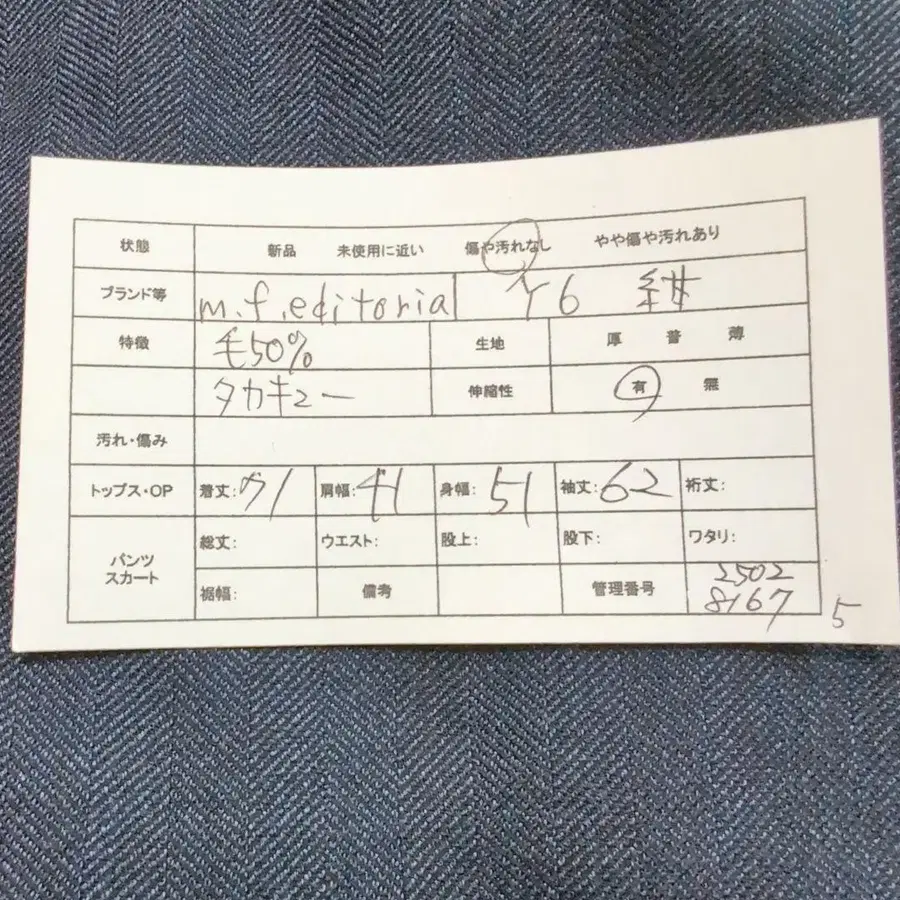 状態 新品 未使用に近い 傷や汚れなし やや傷や汚れあり
ブランド等 m.f.editorial Y6 紺
特徴 毛50% 生地 厚 普 薄
タカキュー 伸縮性 有 無
汚れ・傷み
トップス・OP 着丈: 71 肩幅: 41 身幅: 51 袖丈: 62 裄丈:
パンツ スカート 総丈: ウエスト: 股上: 股下: ワタリ:
裾幅: 備考 管理番号 2502
8167 5